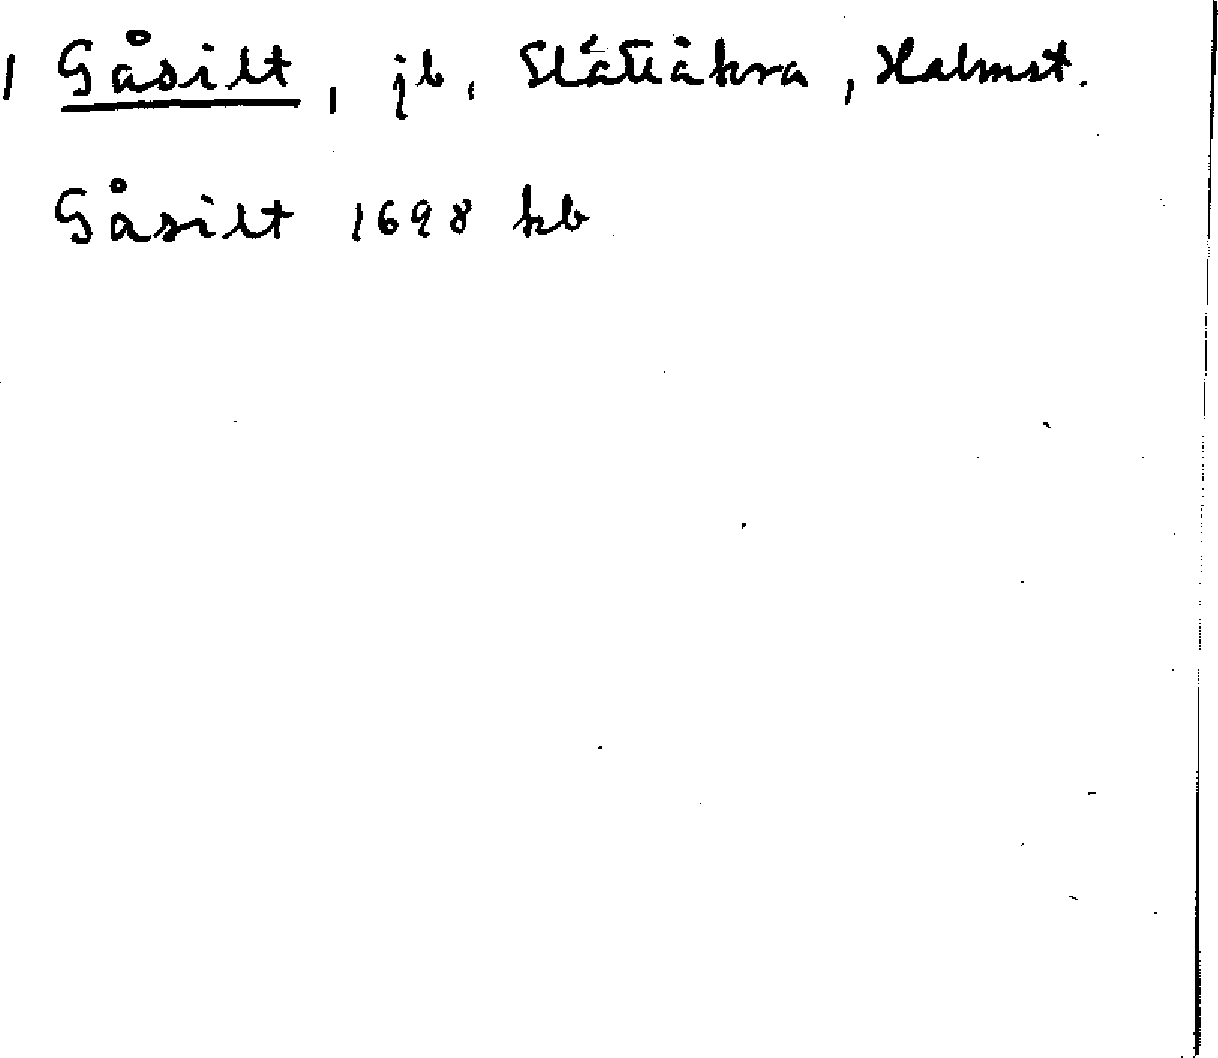 1 Gåsilt, jb, Slättåkra, Halmst.
Gåsilt 1698 kb